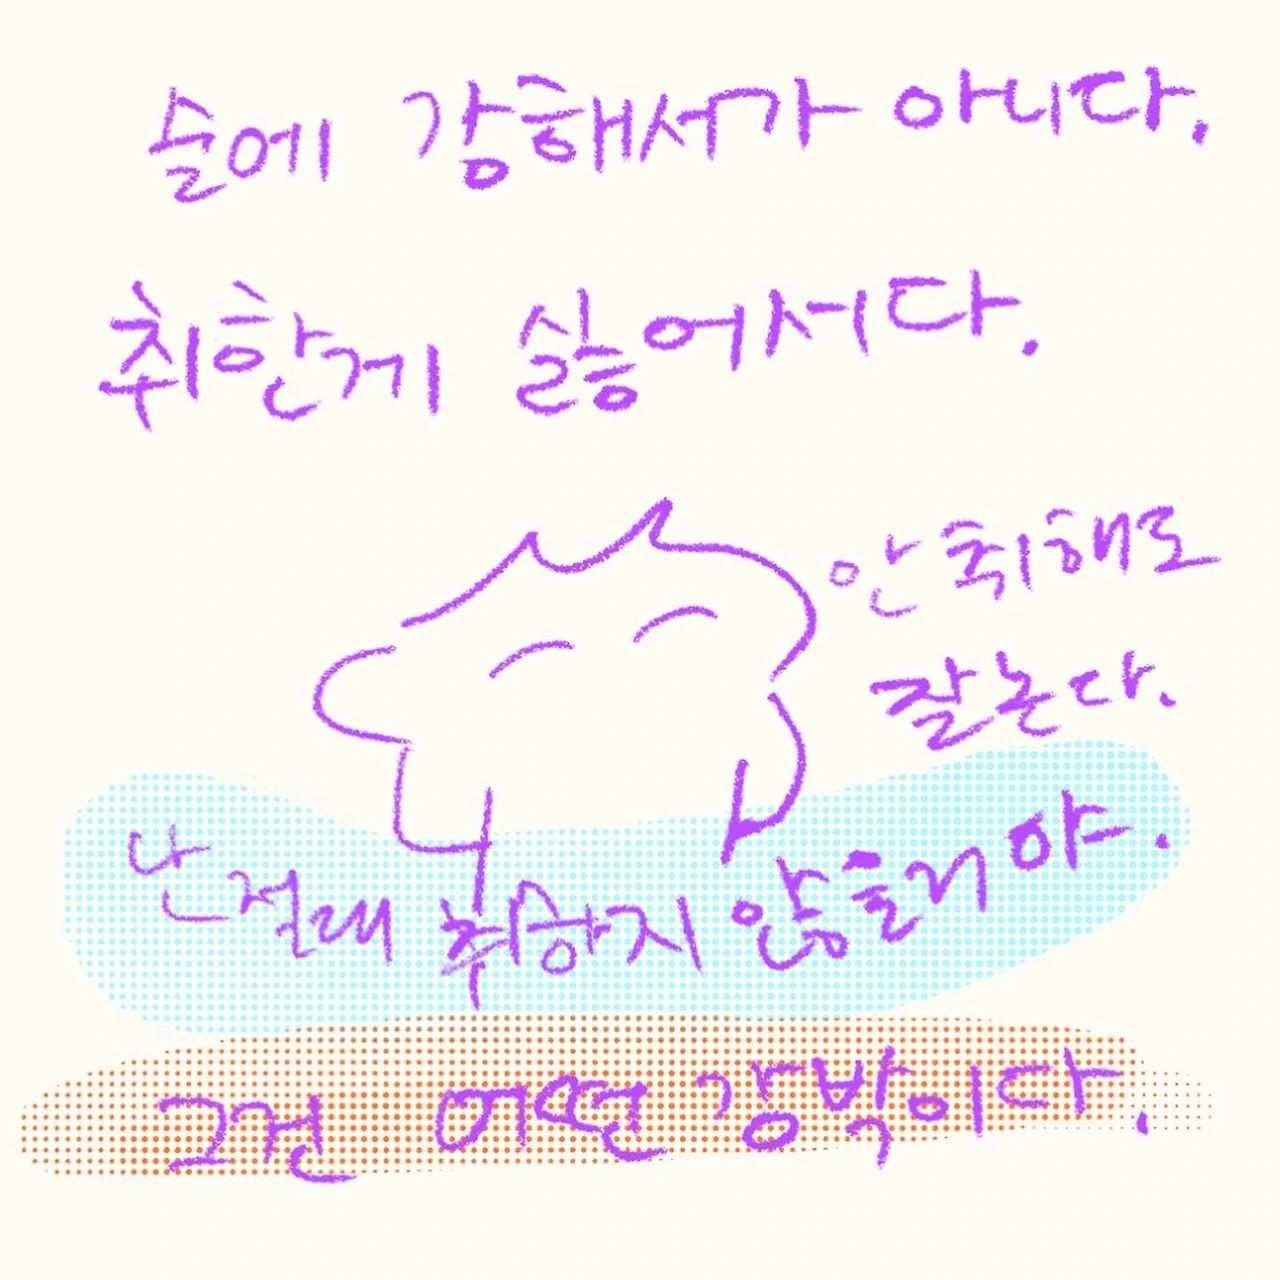 술에 강해서가 아니다.
취한게 싫어서다.
안 취해도
잘 논다.
난 절대 취하지 않을거야.
그건 어떤 강박이다.